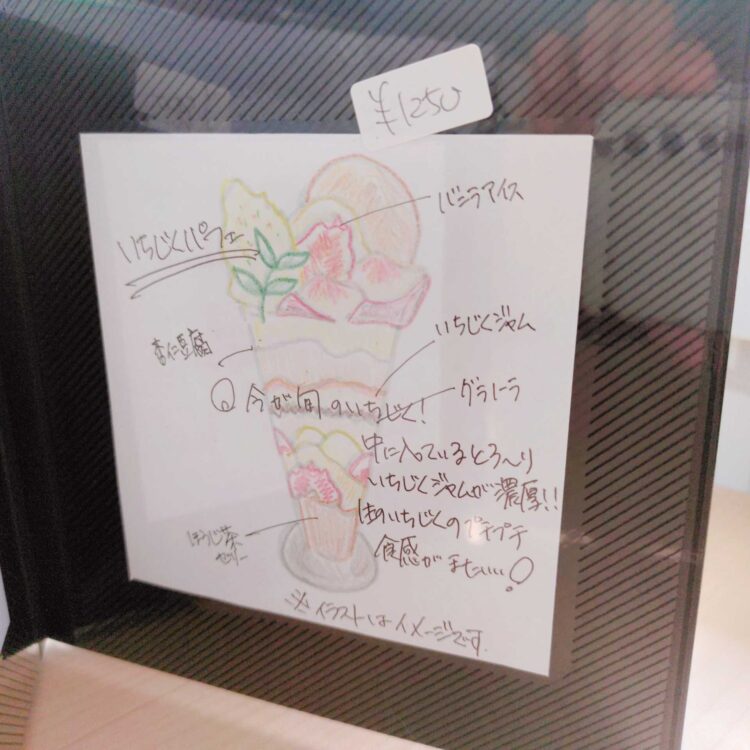 ¥1250
バニラアイス
いちじくパフェ
いちじくジャム
杏仁豆腐
グラノーラ
今が旬のいちじく!
中に入っているとろ〜り
いちじくジャムが濃厚!!
いちじくのプチプチ
食感がまたいい!
ほうじ茶
ゼリー
※イラストはイメージです。